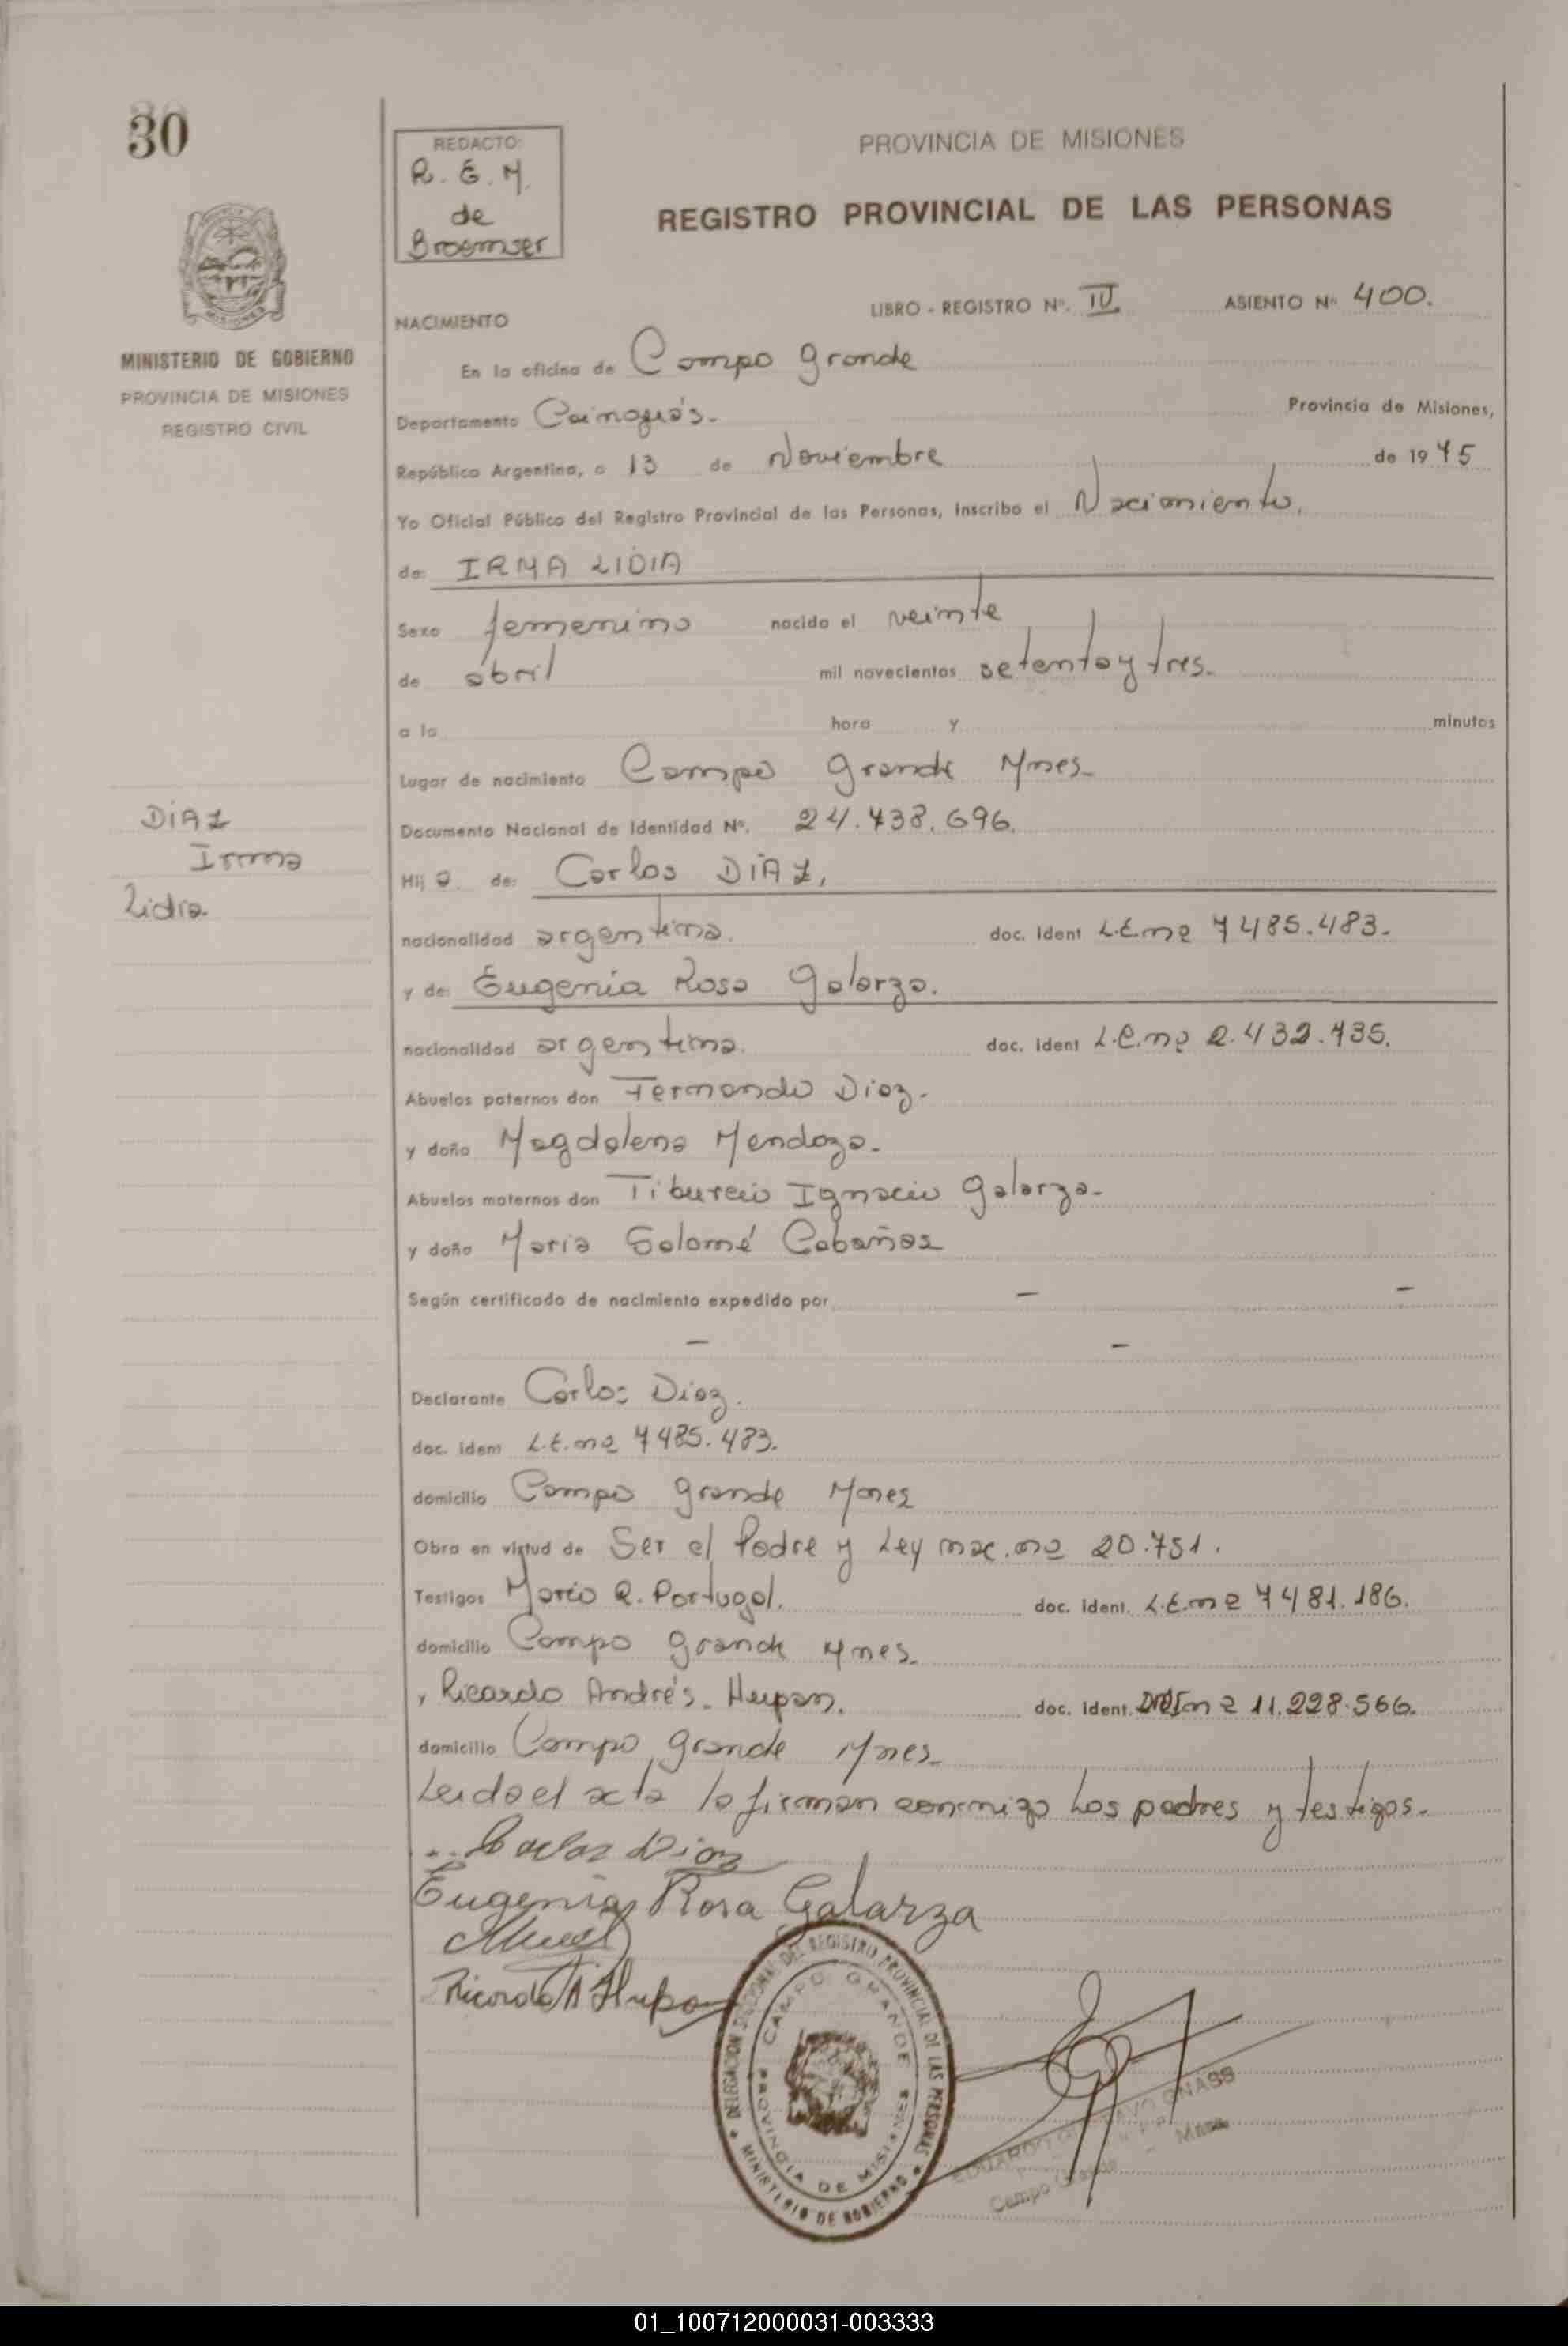 30
REDACTO:
R. E. M.
de
Broemser
PROVINCIA DE MISIONES
REGISTRO PROVINCIAL DE LAS PERSONAS
MISIONES
MINISTERIO DE GOBIERNO
PROVINCIA DE MISIONES
REGISTRO CIVIL
LIBRO - REGISTRO Nº. IV ASIENTO Nº 400.
NACIMIENTO
En la oficina de Campo Grande
Departamento Cainguás. Provincia de Misiones,
República Argentina, a 13 de Noviembre de 1975
Yo Oficial Público del Registro Provincial de las Personas, inscribo el Nacimiento.
de: IRMA LIDIA
Sexo femenino nacido el veinte
de abril mil novecientos setenta y tres.
a la hora y minutos
Lugar de nacimiento Campo Grande Mnes.
Documento Nacional de Identidad Nº. 24.738.696.
DIAZ
Irma
Lidia.
Hij a. de: Carlos DIAZ,
nacionalidad argentina. doc. ident L.E.nº 7485.483.
y de: Eugenia Rosa Galarza.
nacionalidad argentina. doc. ident L.C.nº 2.432.735.
Abuelos paternos don Fernando Diaz.
y doña Magdalena Mendoza.
Abuelos maternos don Tiburcio Ignacio Galarza.
y doña Maria Salomé Cabañas
Según certificado de nacimiento expedido por — —
— —
Declarante Carlos Diaz.
doc. ident L.E.nº 7485.483.
domicilio Campo Grande Mnes
Obra en virtud de Ser el Padre y Ley nac. nº 20.751.
Testigos Mario R. Portugal. doc. ident. L.E.nº 7481.186.
domicilio Campo Grande Mnes.
y Ricardo Andrés Hupan. doc. ident. nº 11.228.566.
domicilio Campo Grande Mnes.
Leida el acta la firman conmigo Los padres y testigos.
Carlos Diaz
Eugenia Rosa Galarza
Ricardo A Hupan
DELEGACION SECCIONAL DEL REGISTRO PROVINCIAL DE LAS PERSONAS
CAMPO GRANDE
PROVINCIA DE MISIONES
MINISTERIO DE GOBIERNO
EDUARDO GNASS
Campo Grande - Mnes.
01_100712000031-003333